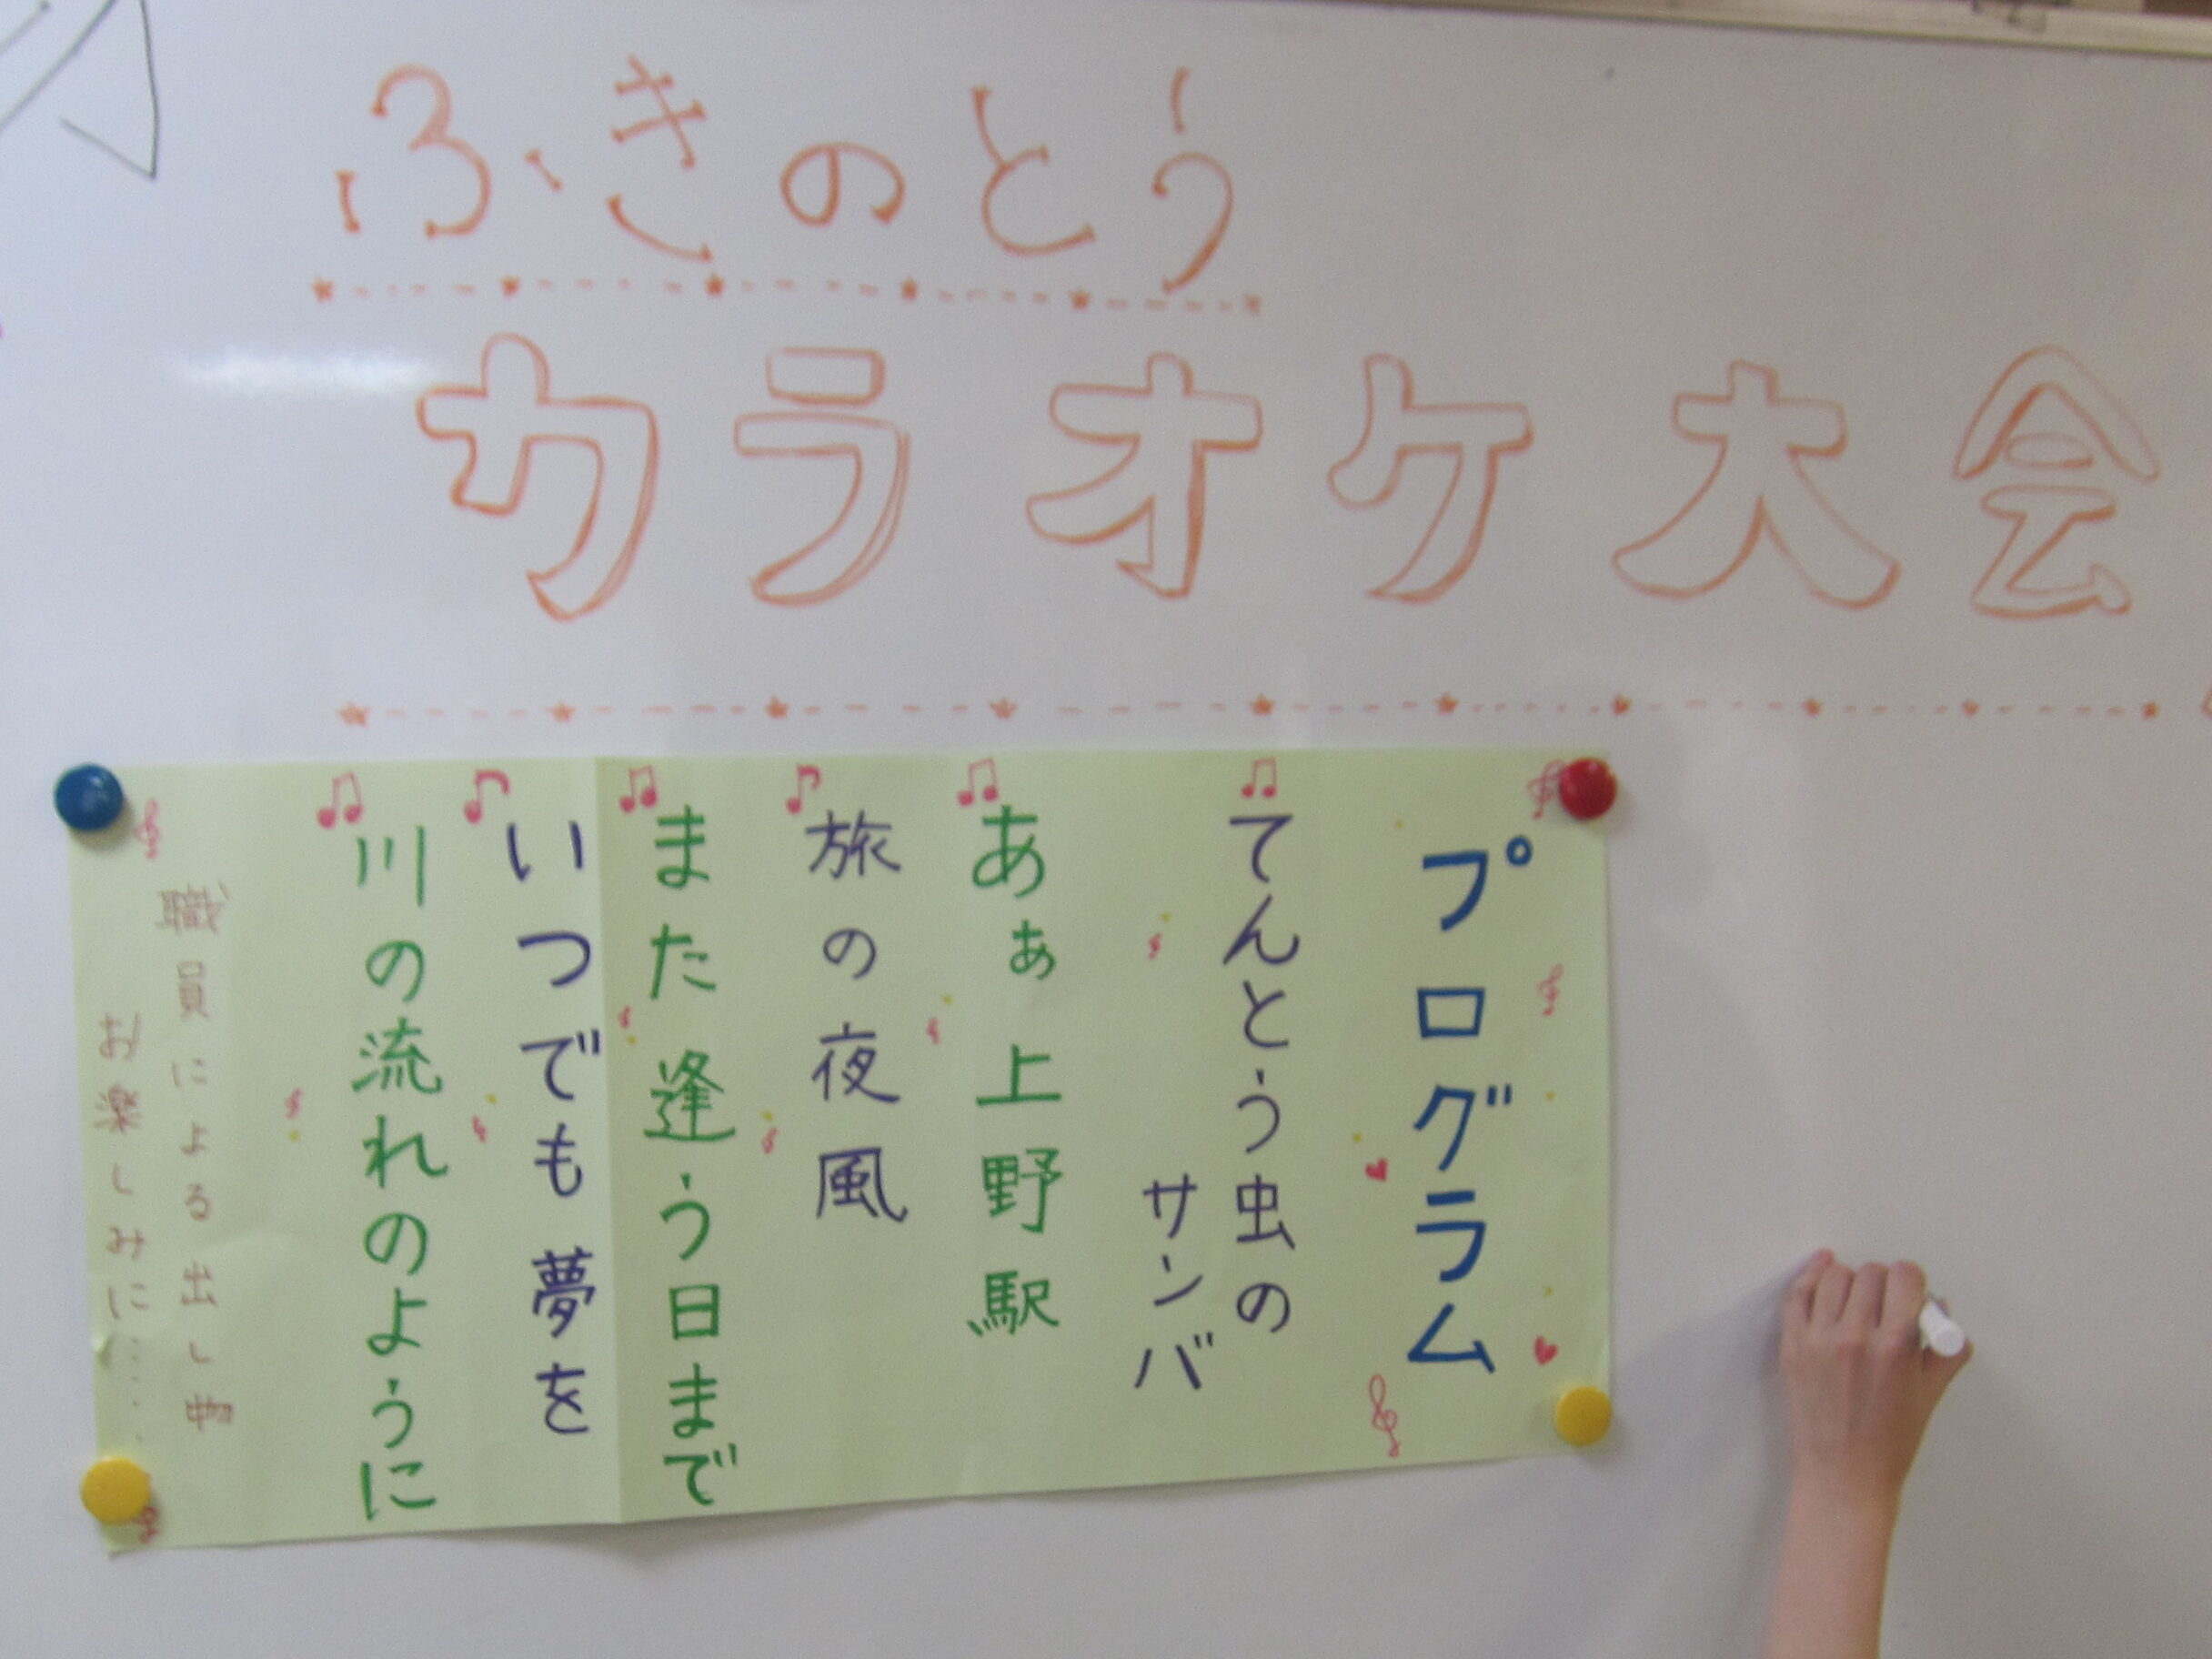 ふきのとう
カラオケ大会
プログラム
てんとう虫の
サンバ
あぁ上野駅
旅の夜風
また逢う日まで
いつでも夢を
川の流れのように
職員による出し物
お楽しみに……